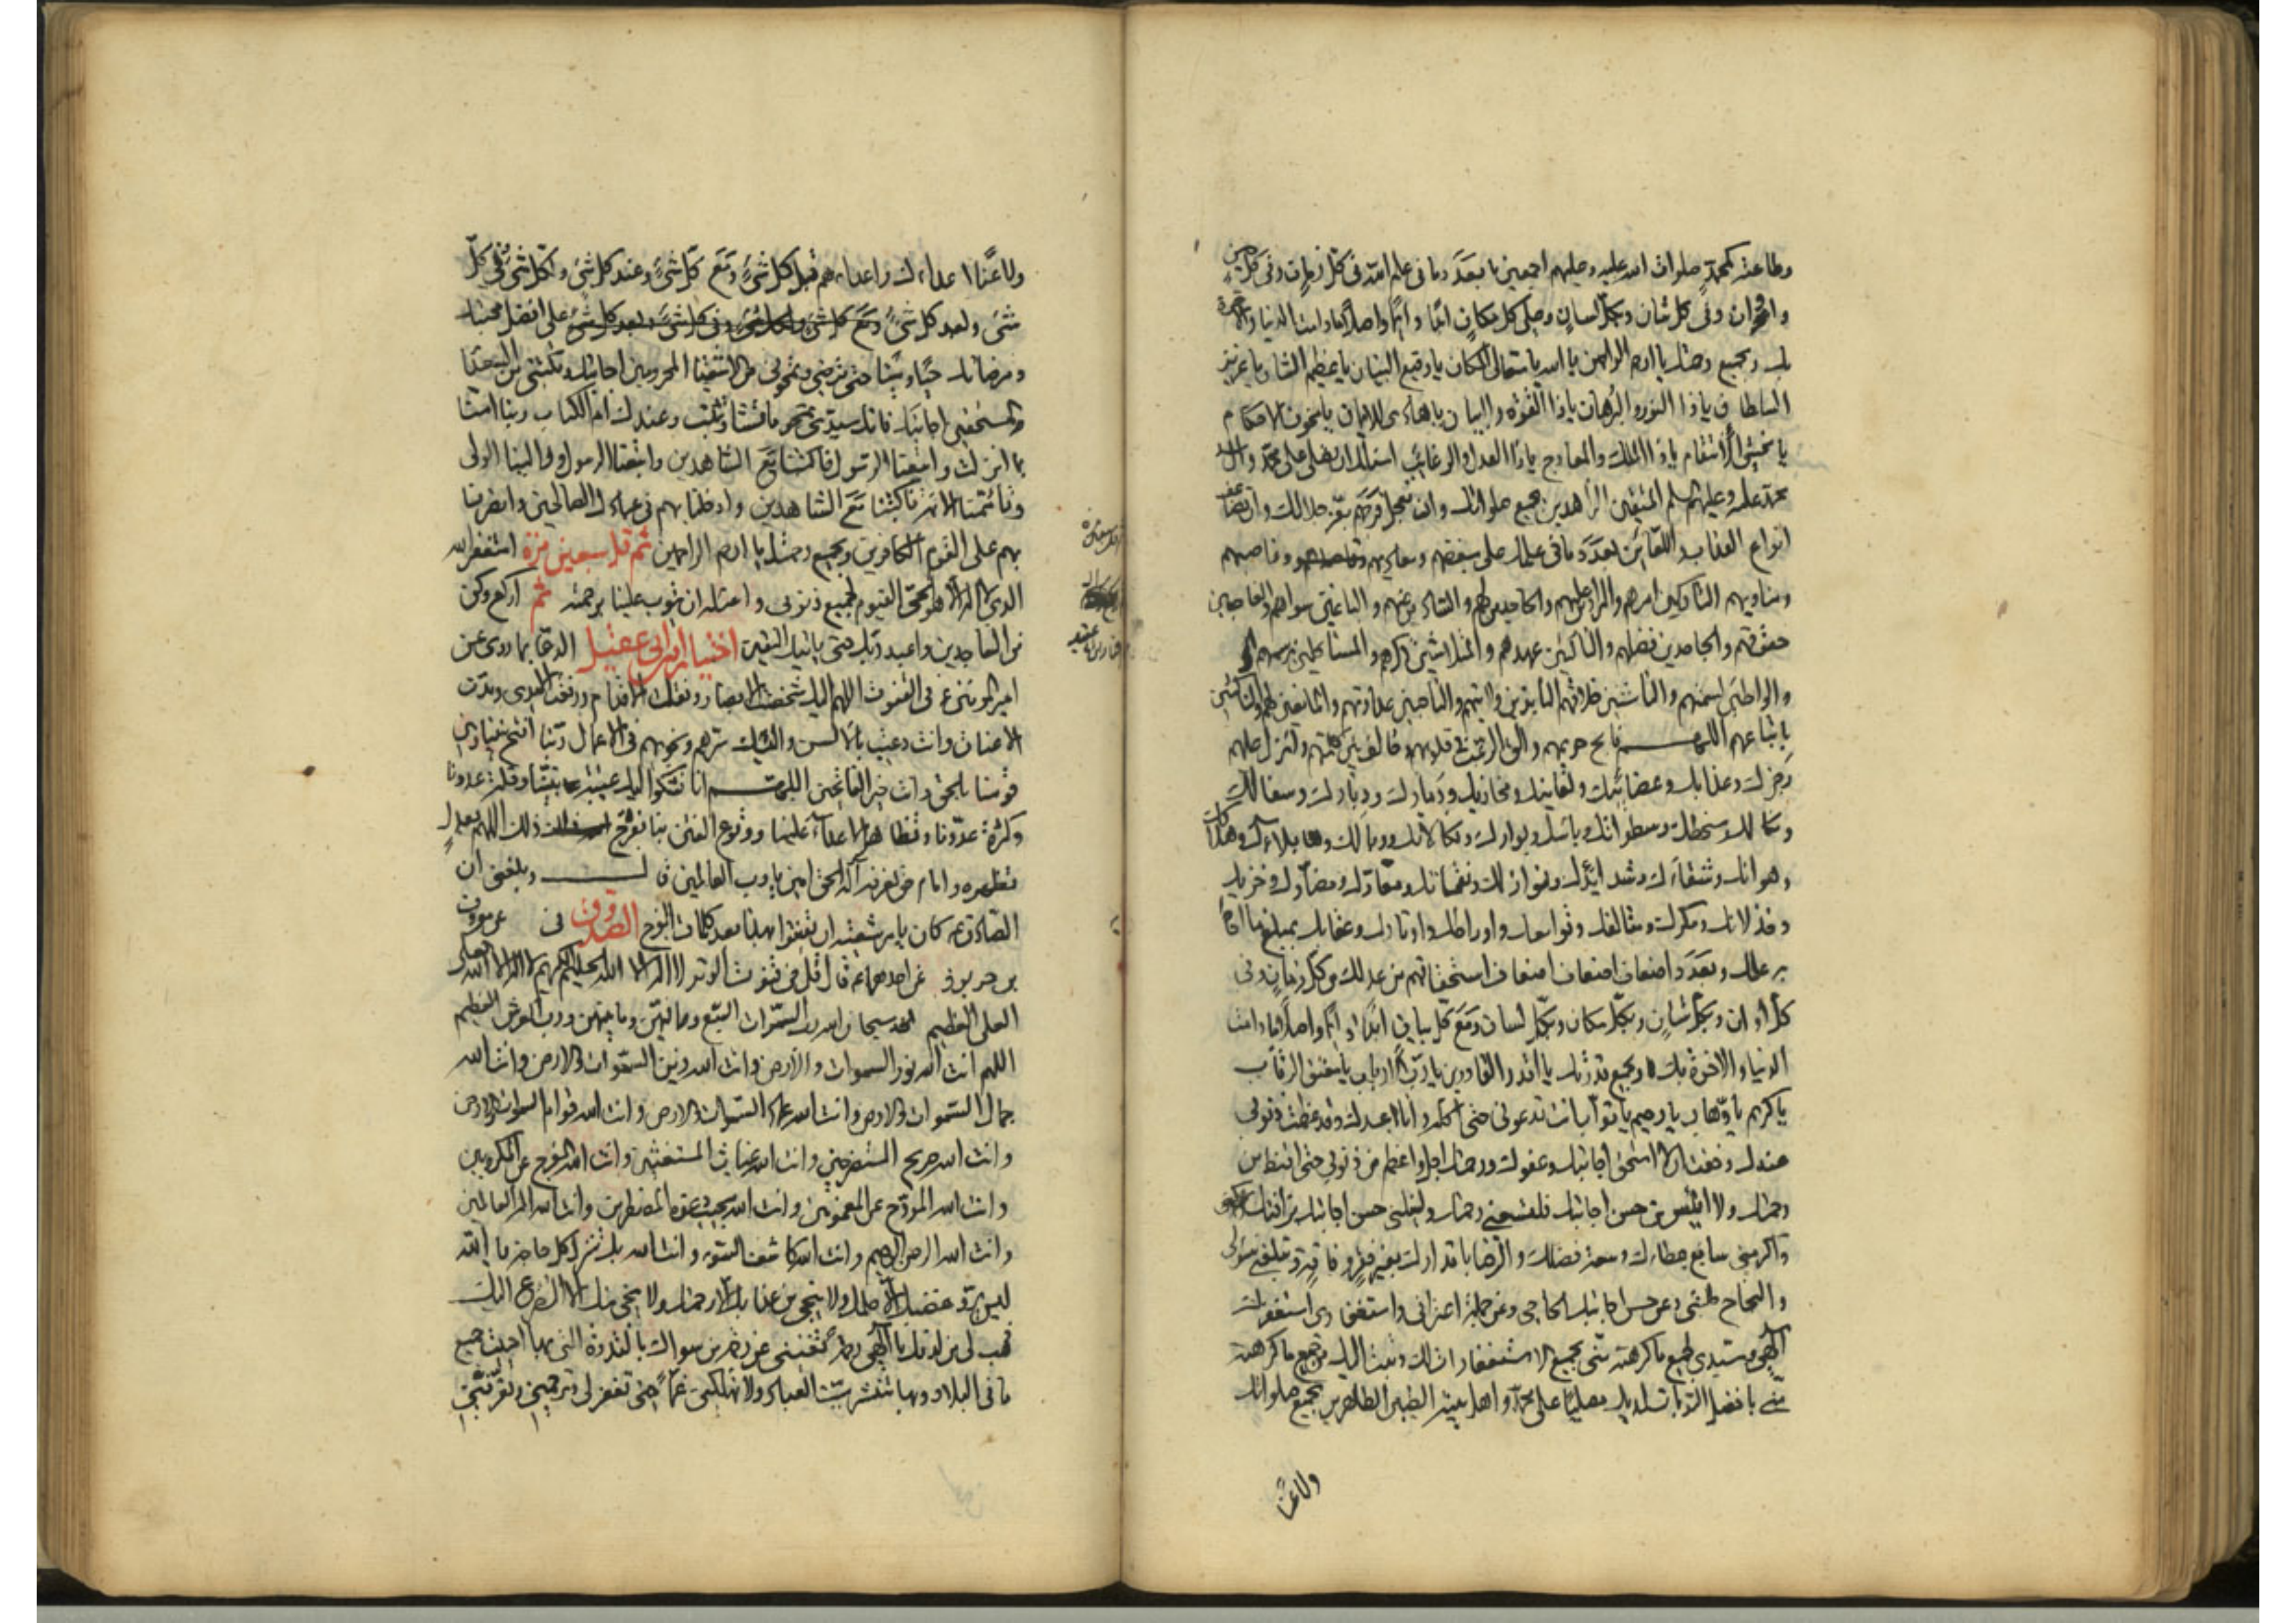 وطاعته كمحمد صلوات الله عليه وعليهم اجمعين بعدد ما في علم الله في كل زمان وفي كل حين
واوان وفي كل شان وبكل لسان وعلى كل مكان ابدا دائما واصلا ما دامت الدنيا والاخرة
بك وبجميع رحمتك يا ارحم الراحمين يا الله يا متعالي المكان يا رفيع البنيان يا عظيم الشان يا عزيز
السلطان يا ذا النور والبرهان يا ذا القوة والبيان يا هادي للايمان يا مخوف الاحكام
يا مخشي الانتقام يا ذا الملك والمعارج يا ذا العدل والرغائب اسئلك ان تصلي على محمد وال
محمد المتقين الزاهدين بجميع صلواتك وان تعجل فرجهم بعز جلالك وان تضاعف
انواع العذاب واللعائن بعدد ما في علمك على مبغضهم ومعاديهم وغاصبهم
ومناويهم التاركين امرهم والرادين عليهم والجاحدين لهم والصادين عنهم والباغين سواهم والغاصبين
حقوقهم والجاحدين فضلهم والناكثين عهدهم والمتلاشين ذكرهم والمستاكلين برسمهم
والواطئين لسمتهم والناشئين خلافهم والناصبين عداوتهم والمانعين لهم والناكثين
باتباعهم اللهم فابح حريمهم والق الرعب في قلوبهم وخالف بين كلمتهم وانزل عليهم
رجزك وعذابك وغضائبك ولعاينك ومخازيك ودمارك ودبارك وسفالك
ونكالك وسخطك وسطواتك وباسك وبوارك ونكالاتك ووبالك وبلاءك وهلاكك
وهوانك وشقاءك وشدائدك ونوازلك ونقماتك ومعارك ومضارك وخزيك
وخذلانك ومكرك ومتالفك وقوامعك واوراطك واوتارك وعقابك بمبلغ ما احاط
به علمك وبعدد اضعاف اضعاف اضعاف استحقاقهم من عدلك من كل زمان وفي
كل اوان وبكل شان وبكل مكان وبكل لسان ومع كل بيان ابدا دائما واصلا ما دامت
الدنيا والاخرة بك وبجميع قدرتك يا اقدر القادرين يا رب الارباب يا معتق الرقاب
يا كريم يا وهاب يا رحيم يا تواب انت تدعوني حتى اكل وانا عبدك وقد عظمت ذنوبي
عندك وخفت ان لا استحق اجابتك وعفوك ورحمتك اجل واعظم من ذنوبي حتى اقنط من
رحمتك ولا ائيس من حسن اجابتك فلتسعني رحمتك ولينلني حسن اجابتك برافتك
واكرمني سابغ عطاءك وسعة فضلك والرضا باقدارك بغير فقر وفاقة وتبلغني سؤلي
والنجاح طلبتي وعن حسن اجابتك الحاحي وعن جملة اعترافي واستغفاري استغفرك
الهي وسيدي لجميع ما كرهته مني بجميع الاستغفارات لك وتبت اليك من جميع ما كرهته
مني بافضل التوبات لديك مصليا على محمد واهل بيته الطيبين الطاهرين بجميع صلواتك
ولاعنا
ولاعنا اعداءك واعداءهم قبل كل شئ ومع كل شئ وعند كل شئ ولكل شئ وفي كل
شئ وبعد كل شئ على افضل محبتك
ومرضاتك حيا وميتا حتى ترضى وتمحوني من الاشقياء المحرومين اجابتك وتكتبني من السعداء
المستحقين اجابتك فانك سيدي تمحو ما تشاء وتثبت وعندك ام الكتاب ربنا امنا
بما انزلت واتبعنا الرسول فاكتبنا مع الشاهدين واتبعنا الرسول ووالينا الولي
فاكتبنا مع الشاهدين وادخلنا بهم في عبادك الصالحين وانصرنا
بهم على القوم الكافرين وبجميع رحمتك يا ارحم الراحمين ثم قل سبعين مرة استغفر الله
الذي لا اله الا هو الحي القيوم لجميع ذنوبي واسئله ان يتوب علينا برحمته ثم اركع وكن
من الساجدين واعبد ربك حتى ياتيك اليقين اختيار ابن ابي عقيل الدعا بما روى عن
امير المومنين ع في القنوت اللهم اليك شخصت الابصار ونقلت الاقدام ورفعت الايدي ومدت
الاعناق وانت دعيت بالالسن واليك سرهم ونجويهم في الاعمال ربنا افتح بيننا وبين
قومنا بالحق وانت خير الفاتحين اللهم انا نشكوا اليك غيبة نبينا وقلة عددنا
وكثرة عدونا وتظاهر الاعداء علينا ووقوع الفتن بنا ففرج ذلك اللهم بعدل
تظهره وامام حق تعرفه اله الحق امين يا رب العالمين قال وبلغني ان
الصادق ع كان يامر شيعته ان يقنتوا بهذا بعد كلمات الفرج الصدوق في عن معروف
بن خربوذ عن احدهما ع قال قل في قنوت الوتر لا اله الا الله الحليم الكريم لا اله الا الله العلي
العلي العظيم سبحان الله رب السموات السبع وما فيهن وما بينهن ورب العرش العظيم
اللهم انت الله نور السموات والارض وانت الله زين السموات والارض وانت الله
جمال السموات والارض وانت الله عماد السموات والارض وانت الله قوام السموات والارض
وانت الله صريخ المستصرخين وانت الله غياث المستغيثين وانت الله المفرج عن المكروبين
وانت الله المروح عن المغمومين وانت الله مجيب دعوة المضطرين وانت الله اله العالمين
وانت الله الرحمن الرحيم وانت الله كاشف السوء وانت الله بك تنزل كل حاجة يا الله
ليس يرد غضبك الا حلمك ولا ينجي من عذابك الا رحمتك ولا ينجي منك الا التضرع اليك
فهب لي من لدنك يا الهي رحمة تغنيني عن رحمة من سواك بالقدرة التي بها احييت جميع
ما في البلاد وبها تنشر ميت العباد ولا تهلكني غما حتى تغفر لي وترحمني وتعرفني